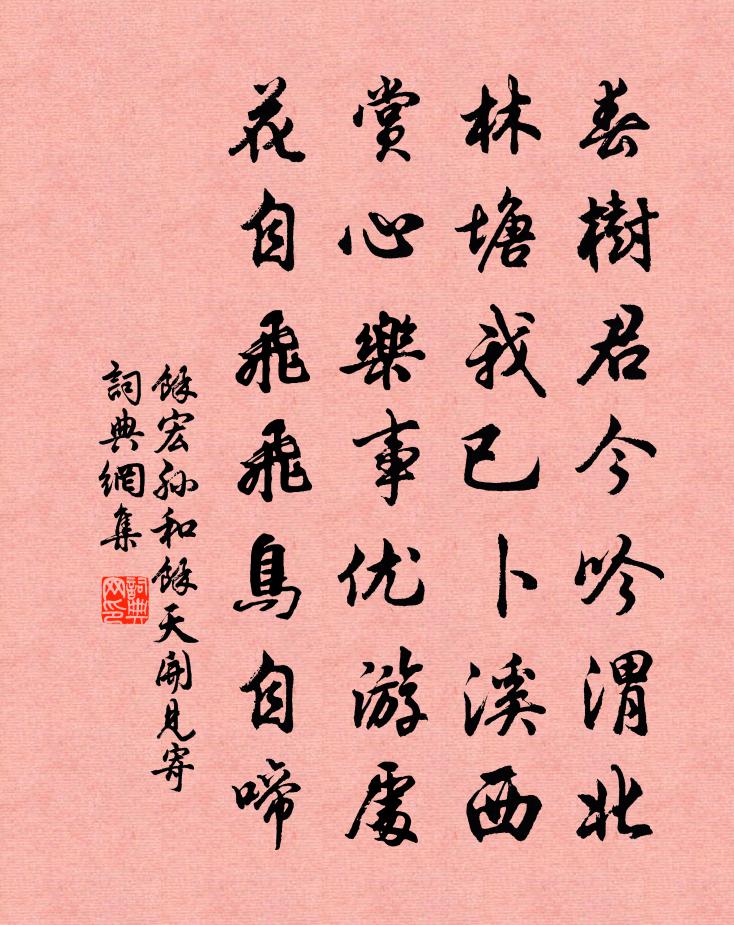 春樹君今吟渭北
林塘我已卜溪西
賞心樂事优游處
花自飛飛鳥自啼
餘宏孫和餘天開見寄
詞典網集
詞典
网印